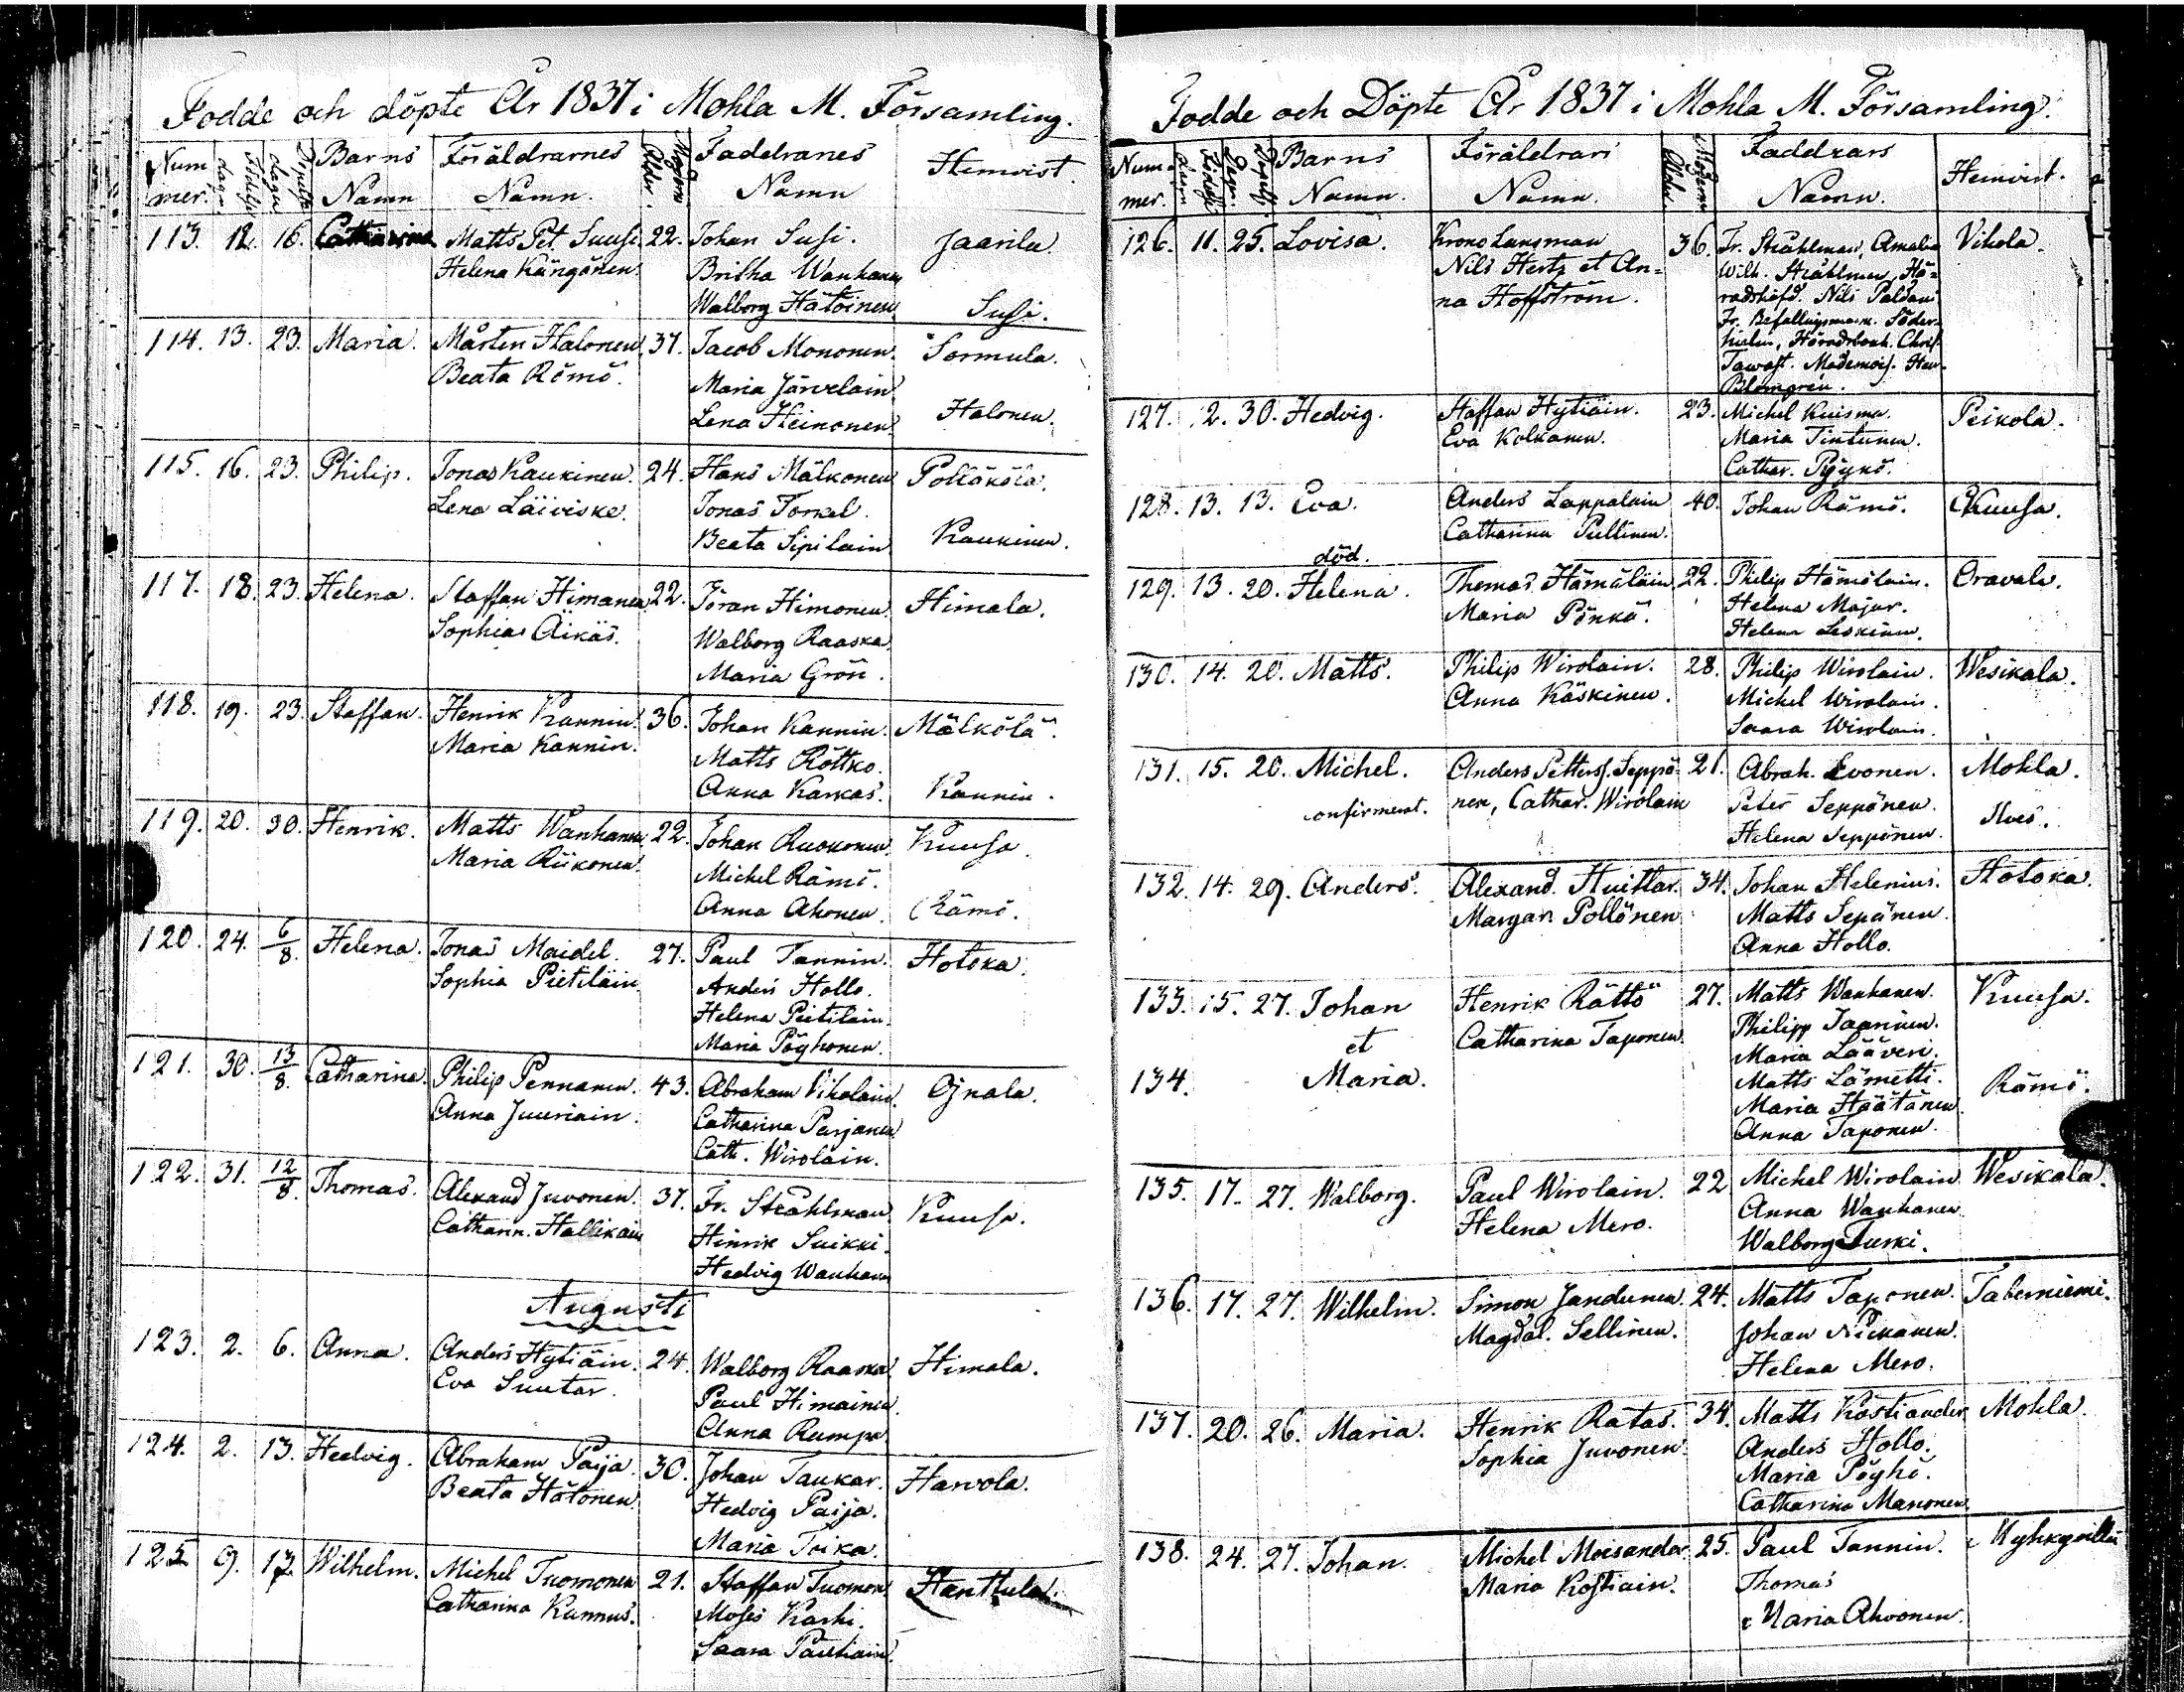 Fodde och döpte År 1837 i Mohla M. Församling.
Num mer. Födelse dagen Döpelse dagen Barns Namn Föräldrarnes Namn. Modrens Ålder. Faddranes Namn Hemvist.
113. 12. 16. Catharina Matts Pet. Suusi 22. Johan Susi. Jaarila.
Helena Kängänen. Britha Wanhanen
Walborg Hätöinen Susi.
114. 13. 23. Maria. Mårten Halonen 37. Jacob Mononen. Sormula.
Beata Rämö. Maria Järvelain
Lena Heinonen. Halonen.
115. 16. 23. Philip. Jonas Kaukinen. 24. Hans Mälkonen Pollökölä.
Lena Läiviske. Jonas Torkel.
Beata Sipilain Kaukinen.
117. 18. 23. Helena. Staffan Himanen 22. Jöran Himonen. Himala.
Sophia Äikäs. Walborg Raaska.
Maria Grön.
118. 19. 23. Staffan. Henrik Kannin. 36. Johan Kannin. Mälkölä.
Maria Kannin. Matts Röttko.
Anna Karkas. Kannin.
119. 20. 30. Henrik. Matts Wanhanen 22. Johan Ruokonen. Kuusa.
Maria Riikonen. Michel Rämö.
Anna Ahonen. Rämö.
120. 24. 6/8. Helena. Jonas Maidel. 27. Paul Tannin. Hotoka.
Sophia Pietiläin. Anders Hollo.
Helena Pietilain.
Maria Pöyhonen.
121. 30. 13/8. Catharina. Philip Pennanen. 43. Abraham Viholain. Ojnala.
Anna Juuriain. Catharina Parjanen
Cath. Wirolain.
122. 31. 12/8. Thomas. Alexand Juvonen. 37. Fr. Stråhlman Kuusa.
Catharin. Hallikain Hinrik Suikki.
Hedvig Wanhanen
Augusti
123. 2. 6. Anna. Anders Hytiäin. 24. Walborg Raaska Himala.
Eva Suutar. Paul Himainen.
Anna Rumpu
124. 2. 13. Hedvig. Abraham Paija. 30. Johan Taukar. Harvola.
Beata Hätönen. Hedvig Paija.
Maria Toika.
125 9. 13. Wilhelm. Michel Tuomonen 21. Staffan Tuomon. Hanttula.
Catharina Kunnus. Moses Karhi.
Saara Pautiain.
Fodde och Döpte År 1837 i Mohla M. Församling.
Num-mer. Födelse dagen Döpelse Dagen Barns Namn. Föräldrars Namn. Modrens Ålder Faddrars Namn. Hemvist.
126. 11. 25. Lovisa. Krono Lansman 36. Fr. Stråhlman, Amalia Vikola.
Nils Hertz et An- Wilh. Stråhlman, Hä-
na Hoffström. radshöfd. Nils Paldani
Fr. Befallngsmann. Söder-
hielm, Häradsbok. Chris.
Tawast. Mademois. Hen.
Blomgrén.
127. 12. 30. Hedvig. Staffan Hytiäin. 23. Michel Kuisma. Peikola.
Eva Kolkanen. Maria Tintunen.
Cathar. Pöyhö.
128. 13. 13. Eva. Anders Lappalain 40. Johan Rämö. Kuusa.
Catharina Pullinen.
död.
129. 13. 20. Helena. Thomas Hämäläin 22. Philip Hämälain. Oravala.
Maria Pönkä. Helena Majur.
Helena Leskinen.
130. 14. 20. Matts. Philip Wirolain. 28. Philip Wirolain. Wesikala.
Anna Käskinen. Michel Wirolain.
Saara Wirolain.
131. 15. 20. Michel. Anders Petters. Seppä- 21. Abrah. Evonen. Mohla.
confirmerat. nen, Cathar. Wirolain Peter Seppänen. Ilves.
Helena Seppänen.
132. 14. 29. Anders. Alexand. Huittar. 34. Johan Helenius. Hotoka.
Margar. Pollönen Matts Sepänen.
Anna Hollo.
133. 15. 27. Johan Henrik Rättö 27. Matts Wanhanen. Kuusa.
et Catharina Taponen. Philipp Jaarinen.
Maria Lääveri.
134. Maria. Matts Lämetti. Rämö.
Maria Häätänen
Anna Taponen.
135. 17. 27. Walborg. Paul Wirolain. 22 Michel Wirolain. Wesikala.
Helena Mero. Anna Wanhanen
Walborg Turki.
136. 17. 27. Wilhelm. Simon Jandunen. 24. Matts Taponen. Taberniemi.
Magdal. Sellinen. Johan Niekanen.
Helena Mero.
137. 20. 26. Maria. Henrik Ratas. 34. Matts Kostiander Mohla.
Sophia Juvonen. Anders Hollo.
Maria Pöyhö.
Catharina Manonen
138. 24. 27. Johan. Michel Moisander 25. Paul Tannin. Kyhkyrillä
Maria Kostiain. Thomas
Maria Ahvonen.